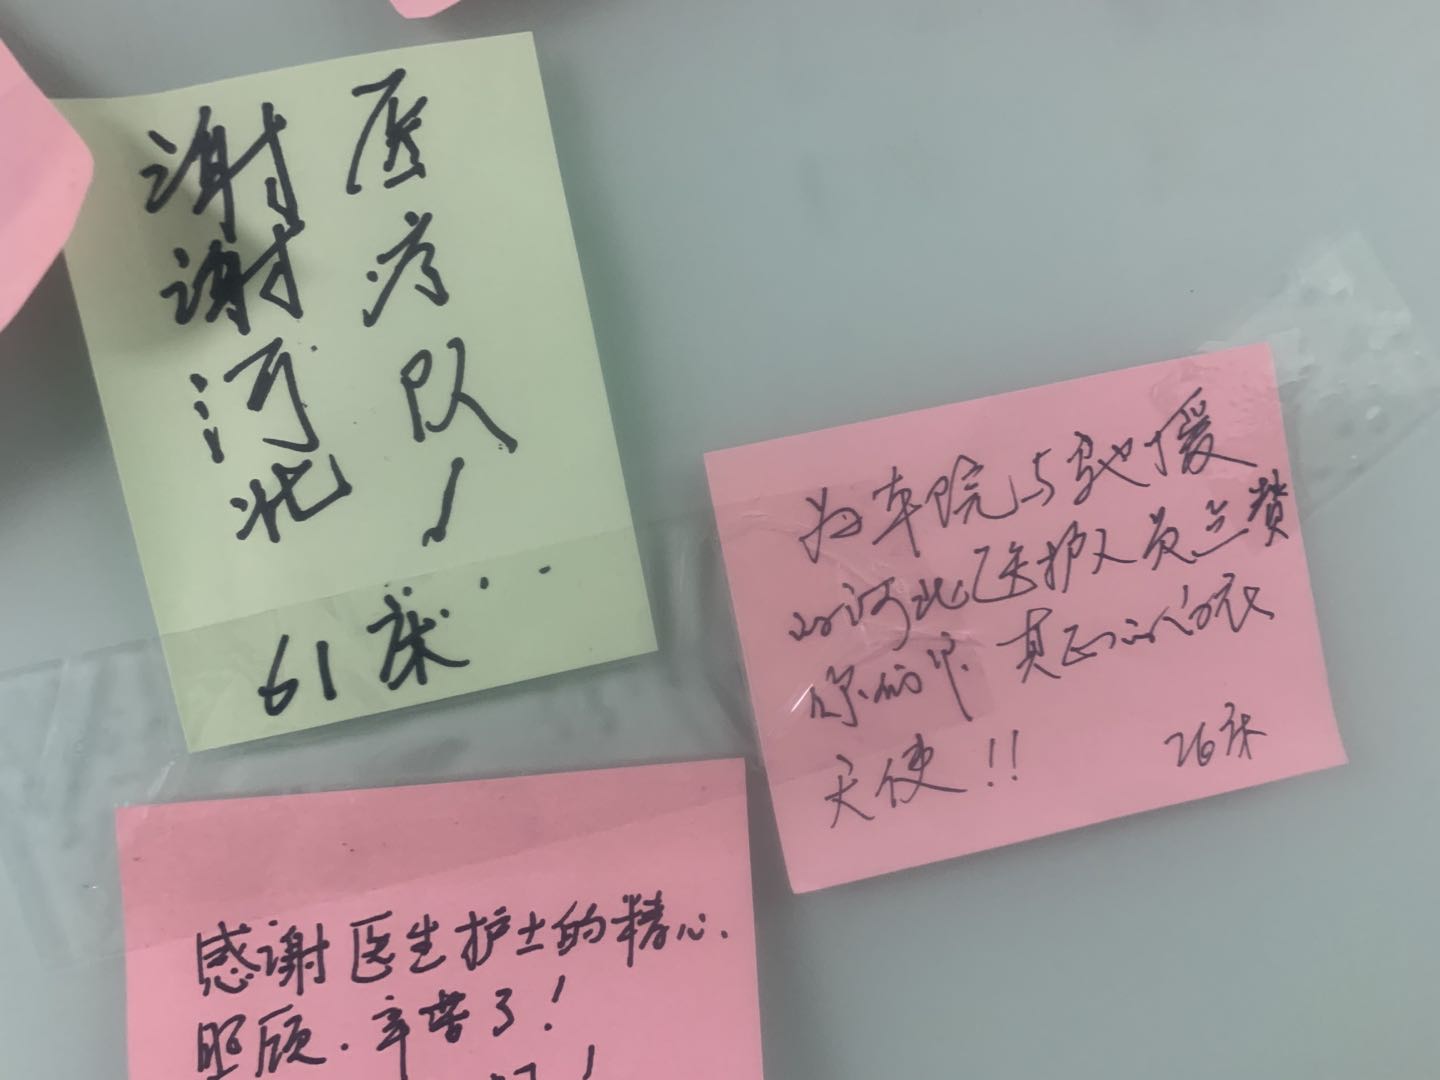 谢谢河北
医疗队!
61床
为本院与驰援
的河北医护人员点赞
你们是真正的白衣
天使!!
26床
感谢医生护士的精心
照顾.辛苦了!